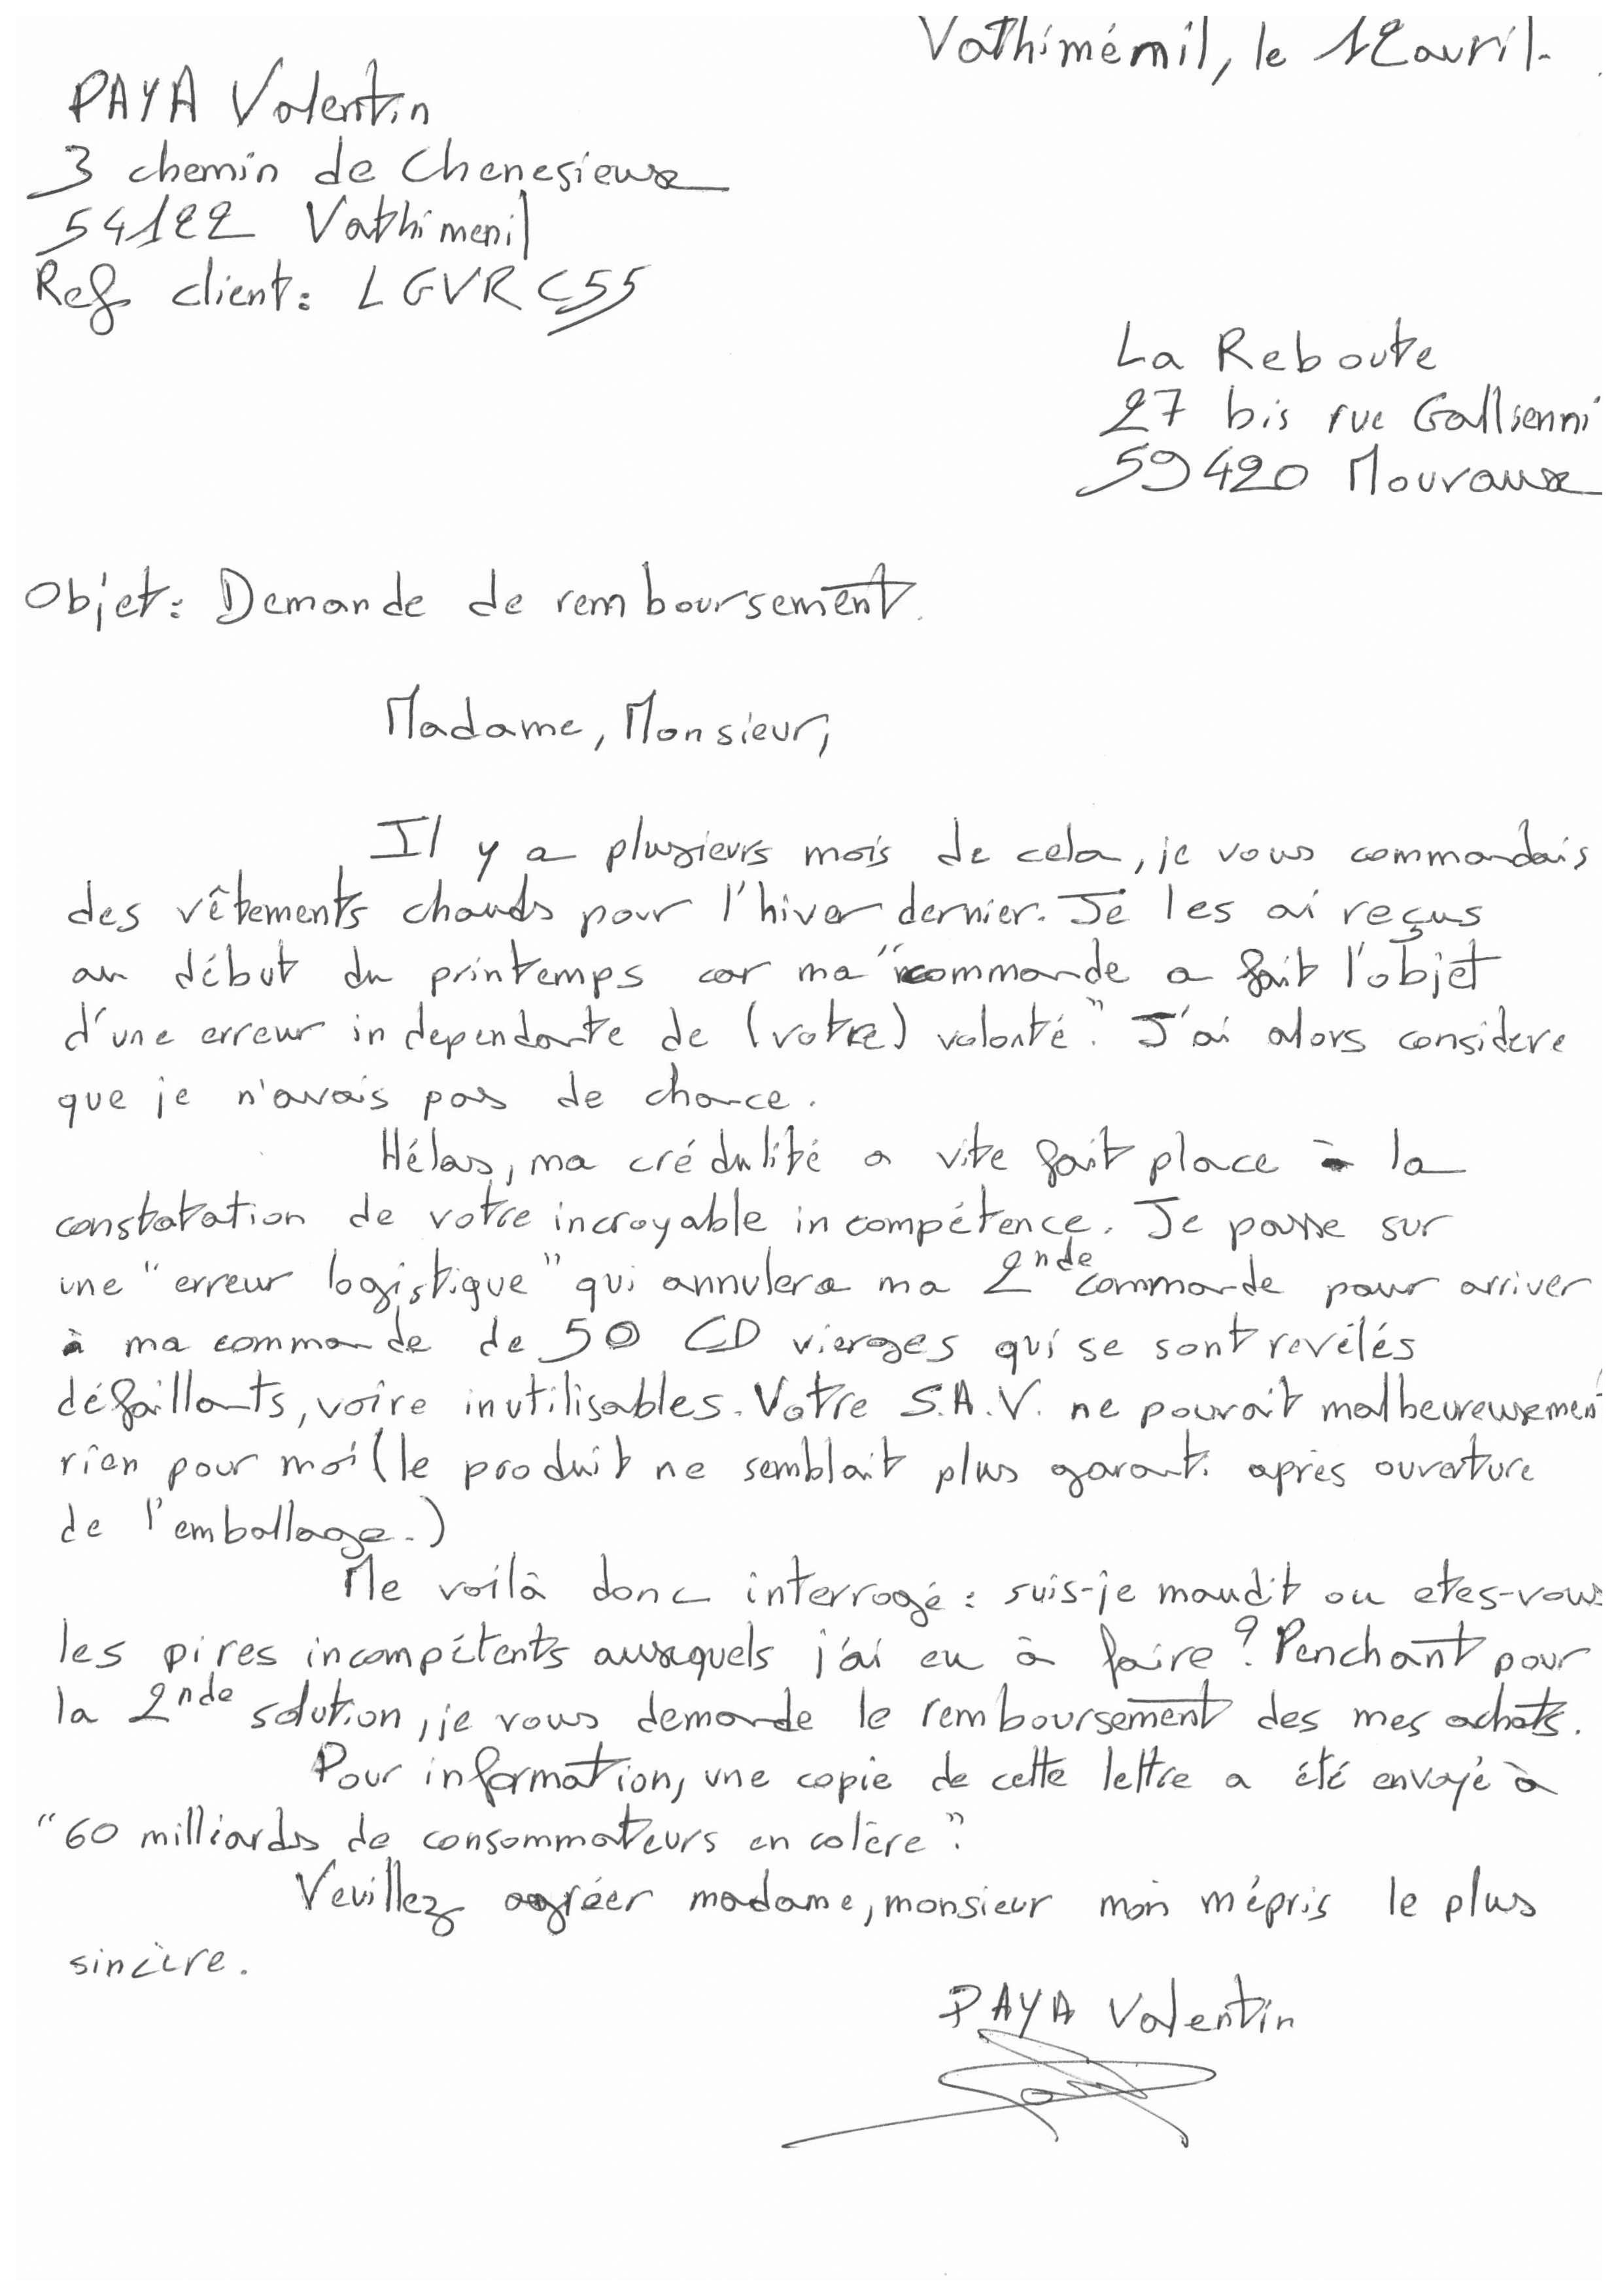 Vathiménil, le 12 avril.
PAYA Valentin
3 chemin de Chenesieux
54122 Vathimenil
Ref client: LGVRC55
La Reboute
27 bis rue Gallienni
59420 Mouvaux
Objet: Demande de remboursement.
Madame, Monsieur,
Il y a plusieurs mois de cela, je vous commandais
des vêtements chauds pour l'hiver dernier. Je les ai reçus
au début du printemps car ma "commande a fait l'objet
d'une erreur independante de (votre) volonté". J'ai alors considere
que je n'avais pas de chance.
Hélas, ma crédulité a vite fait place à la
constatation de votre incroyable incompétence. Je passe sur
une "erreur logistique" qui annulera ma 2nde commande pour arriver
à ma commande de 50 CD vierges qui se sont revélés
défaillants, voire inutilisables. Votre S.A.V. ne pouvait malheureusemen
rien pour moi (le produit ne semblait plus garanti après ouverture
de l'emballage.)
Me voilà donc interrogé : suis-je maudit ou etes-vous
les pires incompétents auxquels j'ai eu à faire ? Penchant pour
la 2nde solution, je vous demande le remboursement des mes achats.
Pour information, une copie de cette lettre a été envoyé à
"60 milliards de consommateurs en colère".
Veuillez agréer madame, monsieur mon mépris le plus
sincère.
PAYA Valentin